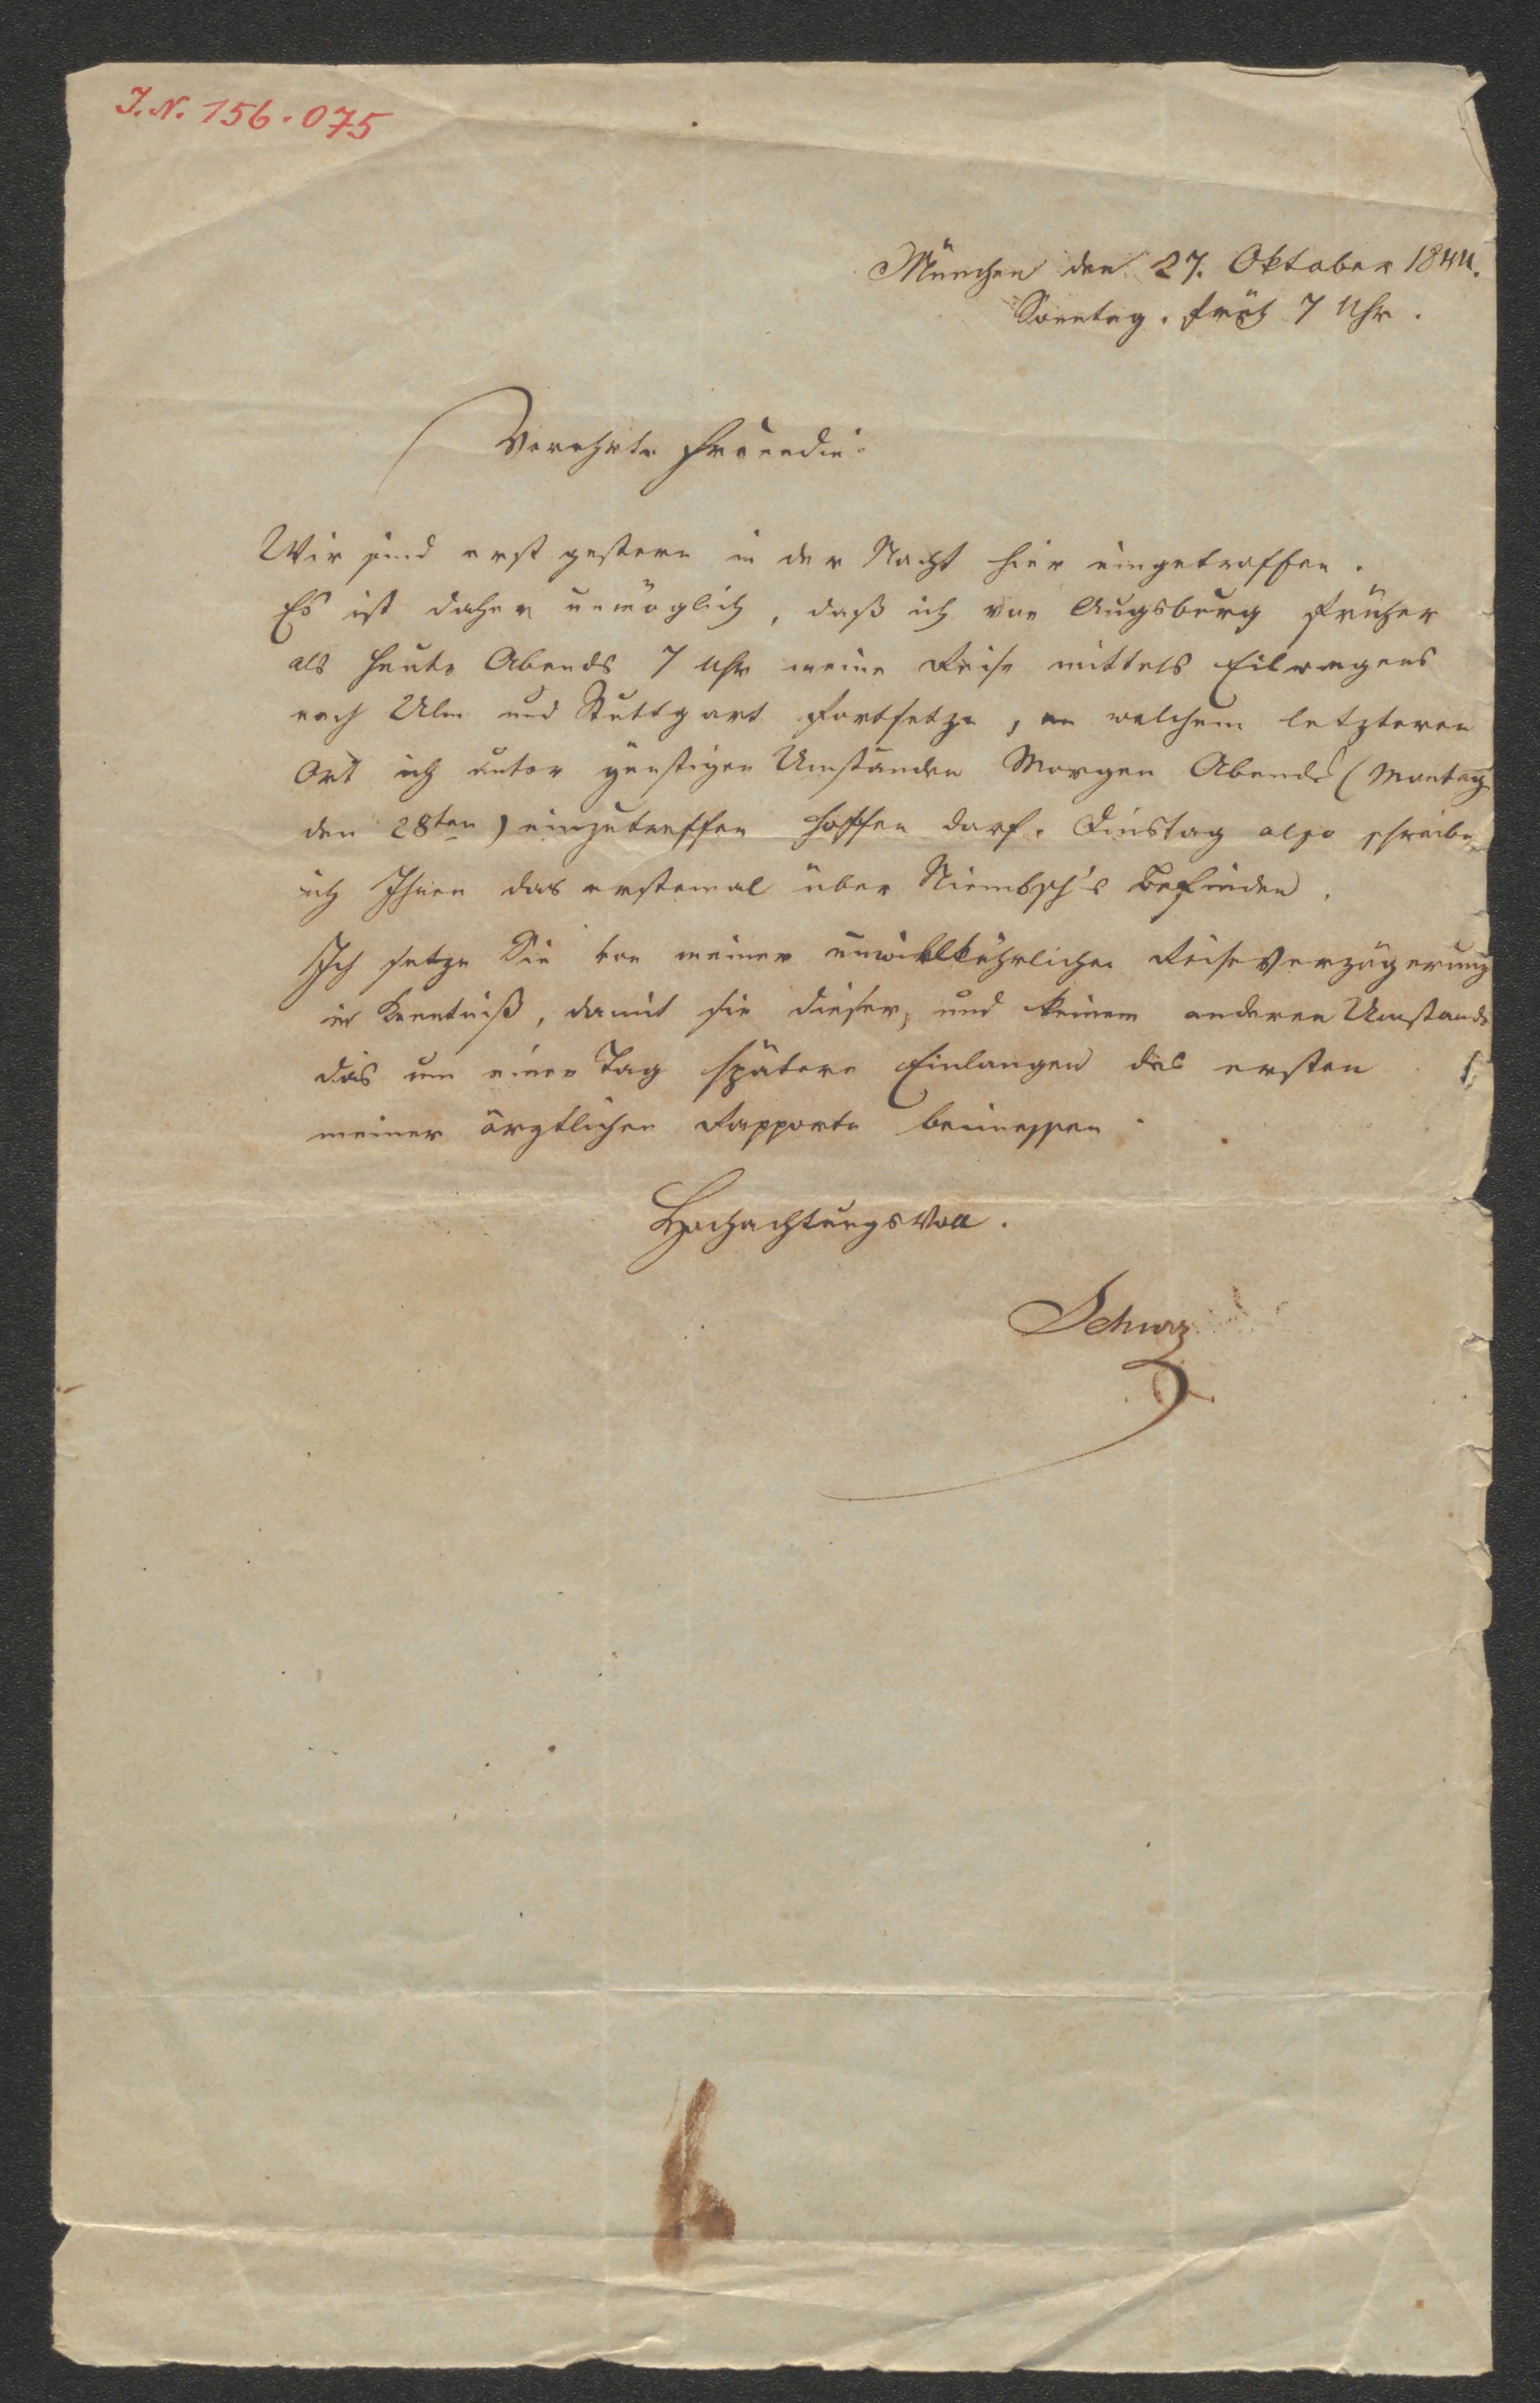 I.N. 156.075
München den 27. Oktober 1844.
Sonntag. Früh 7 Uhr.
Verehrte Freundin.
Wir sind erst gestern in der Nacht hier eingetroffen.
Es ist daher unmöglich, daß ich von Augsburg früher
als heute Abends 7 Uhr meine Reise mittels Eilwagens
nach Ulm und Stuttgart fortsetze, an welchem letzteren
Ort ich unter günstigen Umständen Morgen Abends (Montag
den 28ten) einzutreffen hoffen darf. Dinstag also schreibe
ich Ihnen das erstemal über Niembsch's Befinden.
Ich setze Sie von meiner unwillkührlichen Reiseverzögerung
in Kenntniß, damit sie dieser, und keinem anderen Umstande
das um einen Tag spätere Einlangen des ersten
meiner ärztlichen Rapporte beimessen.
Hochachtungsvoll.
Schurz